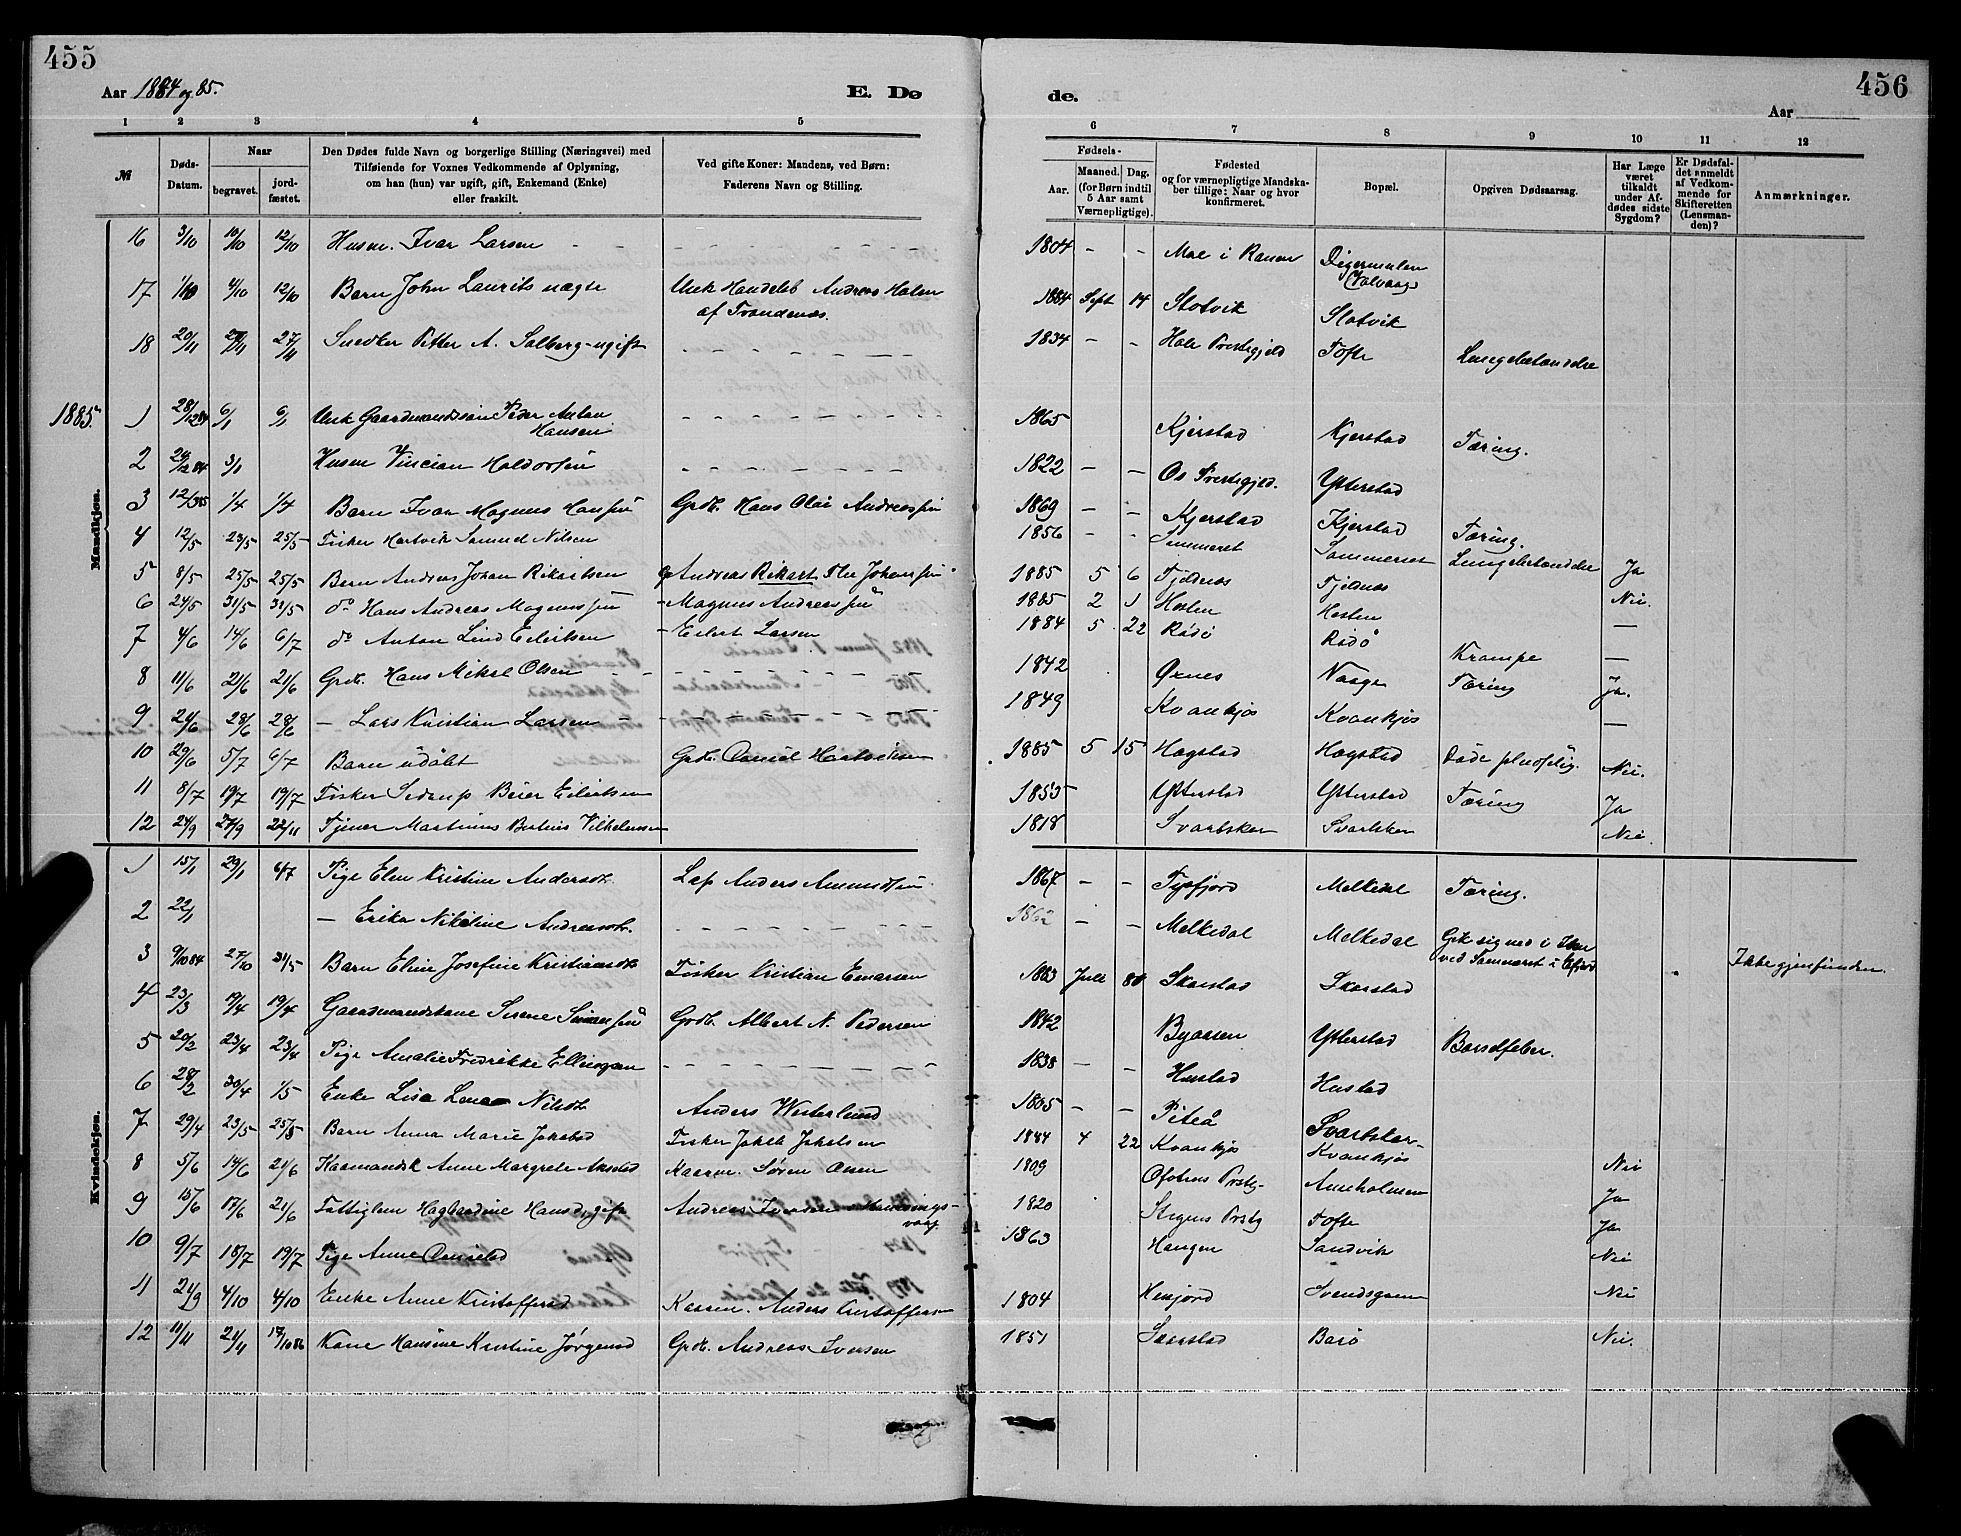 455
456
Aar 1884 og 85.
E. Dø
de.
Aar
1 2 3 4 5 6 7 8 9 10 11 12
№
Døds-Datum.
Naar
begravet.
jord-fæstet.
Den Dødes fulde Navn og borgerlige Stilling (Næringsvei) med
Tilføiende for Voxnes Vedkommende af Oplysning,
om han (hun) var ugift, gift, Enkemand (Enke)
eller fraskilt.
Ved gifte Koner: Mandens, ved Børn:
Faderens Navn og Stilling.
Fødsels-
Aar.
Maaned. Dag.
(for Børn indtil
5 Aar samt
Værnepligtige).
Fødested
og for værnepligtige Mandska-
ber tillige: Naar og hvor
konfirmeret.
Bopæl.
Opgiven Dødsaarsag.
Har Læge
været
tilkaldt
under Af-
dødes sidste
Sygdom?
Er Dødsfal-
det anmeldt
af Vedkom-
mende for
Skifteretten
(Lensman-
den)?
Anmærkninger.
Mandkjøn.
16 3/10 10/10 12/10 Husm. Ivar Larsen - - - 1804 - - Moe i Ranen Digermulen (Valvaag)
17 1/10 4/10 12/10 Barn John Laurits uægte Unk Handelsb Andreas Holm af Trondenæs. 1884 Sept 14 Slotvik Slotvik
18 20/11 27/11 27/11 Snedker Petter A. Salberg - ugift 1834 - - Hole Prestegjeld Tofte Lungebetændelse
1885.
1 28/12 84 6/1 6/1 Unk Gaardmandssøn Peder Anton Hansen 1865 Kjerstad Kjerstad Tæring.
2 3/1 Husm Vincian Haldorsen 1822 - - Os Prestegjeld. Ytterstad
3 12/3 85 1/4 1/4 Barn Ivar Magnus Hansen Grdb. Hans Olai Andreassen 1869 - - Kjerstad Kjerstad Tæring.
4 12/5 23/5 25/5 Fisker Hartvik Samuel Nilsen 1856 - - Sommeret Sommerset Lungebetændelse Ja
5 8/5 25/5 25/5 Barn Andreas Johan Rikartsen Andreas Rikart Johansen 1885 5 6 Fjeldnæs Fjeldnæs Nei.
6 24/5 31/5 31/5 do Hans Andreas Magnussen - Magnus Andreassen 1885 2 1 Hesten Hesten —
7 4/6 14/6 6/7 do Anton Lind Eilertsen - Eilert Larsen 1884 5 22 Rødø Rødø Krampe —
8 11/6 21/6 21/6 Grdb. Hans Mikal Olsen 1842 Øxnes Vaage Tæring Ja.
9 24/6 28/6 28/6 - Lars Kristian Larsen 1849 Kvankjøs Kvankjøs —
10 29/6 5/7 6/7 Barn udøbt Grdb. Daniel Hartviksen 1885 5 15 Hogstad Hogstad Døde pludselig. Nei.
11 8/7 19/7 19/7 Fisker Sedrup Beier Eilertsen 1853 Ytterstad Ytterstad Tæring Ja
12 24/9 27/9 22/11 Tjener Martinus Bertius Vilhelmsen 1818 Svartskar Svartskar Nei.
Kvindekjøn.
1 15/1 29/1 4/7 Pige Elen Kristine Andersdt. Lap Anders Amundsen 1867 - - Tysfjord Melkedal Tæring.
2 22/1 - Erika Nikoline Andersdt. 1862 - - Melkedal Melkedal Gik signed i ved Sommeret i Efjord
3 9/10 84 27/10 31/5 Barn Eline Josefine Kristiansdt Fisker Kristian Enarsen 1883 Juli 80 Skarstad Skarstad Ikke gjenfunden.
4 23/3 19/4 19/4 Gaardmandskone Serene Simonsen Grdb. Albert N. Pedersen 1842 Byaasen Ytterstad Barselfeber.
5 20/2 23/4 23/4 Pige Amalie Fredrikke Ellingsen 1838 - - Hustad Hustad
6 28/2 30/4 1/5 Enke Lisa Lena Nilsdt Anders Westerlund 1805 - - Piteå Svartskar
7 29/4 23/5 25/5 Barn Anna Marie Jakobsd Fisker Jakob Jakobsen 1884 4 22 Kvankjøs Kvankjøs Nei
8 5/6 14/6 21/6 Kaarmandsk Anne Margrete Kaarm. Søren Olsen 1809 Ofotens Prstg. Anneholmen Ja
9 15/6 17/6 21/6 Fattiglem Hagbardine Hansd, gift Andreas Iversen Hanningsvaag 1820 Stegens Prstg Tofte Ja
10 9/7 18/7 19/7 Pige Anne Danielsd 1863 Haugen Sandvik Nei
11 24/9 4/10 4/10 Enke Anne Kristoffersd Kaarm. Anders Kristoffersen 1804 Hessjord Svendsgam Nei
12 11/11 21/11 17/10 86 Kone Hansine Kristine Jørgensd Grdb. Andreas Iversen 1851 Saarstad Barø Nei.